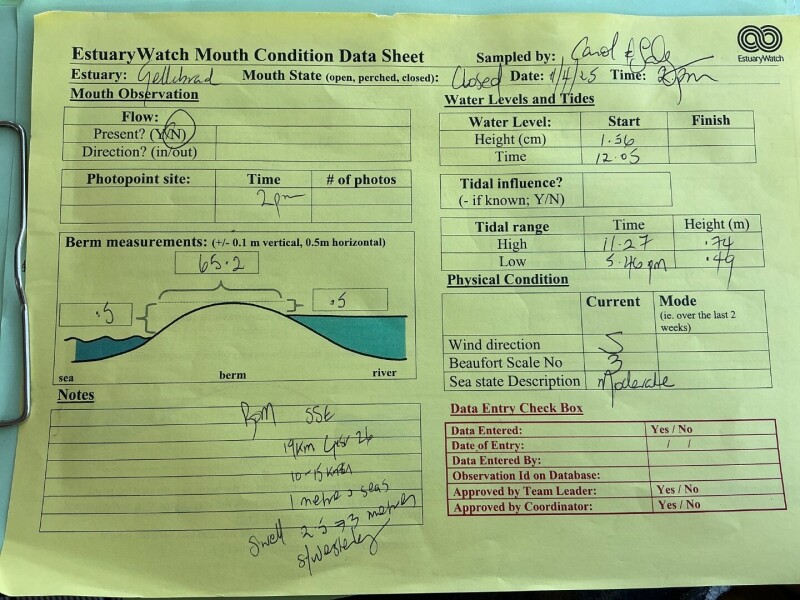 EstuaryWatch Mouth Condition Data Sheet Sampled by: Carol &
EstuaryWatch
Estuary: Gellibrand Mouth State (open, perched, closed): Closed Date: /4/25 Time: 2pm
Mouth Observation
Flow:
Present? (Y/N)
Direction? (in/out)
Photopoint site: Time # of photos
2pm
Berm measurements: (+/- 0.1 m vertical, 0.5m horizontal)
65.2
.5 .5
sea berm river
Notes
2pm SSE
19km Gust 26
10-15 knots
1 metre seas
Swell 2.5 → 3 metres
S/Westerly
Water Levels and Tides
Water Level: Start Finish
Height (cm) 1.56
Time 12.05
Tidal influence?
(- if known; Y/N)
Tidal range Time Height (m)
High 11.27 .74
Low 5.46pm .49
Physical Condition
Current Mode
(ie. over the last 2
weeks)
Wind direction S
Beaufort Scale No 3
Sea state Description Moderate
Data Entry Check Box
Data Entered: Yes / No
Date of Entry: / /
Data Entered By:
Observation Id on Database:
Approved by Team Leader: Yes / No
Approved by Coordinator: Yes / No